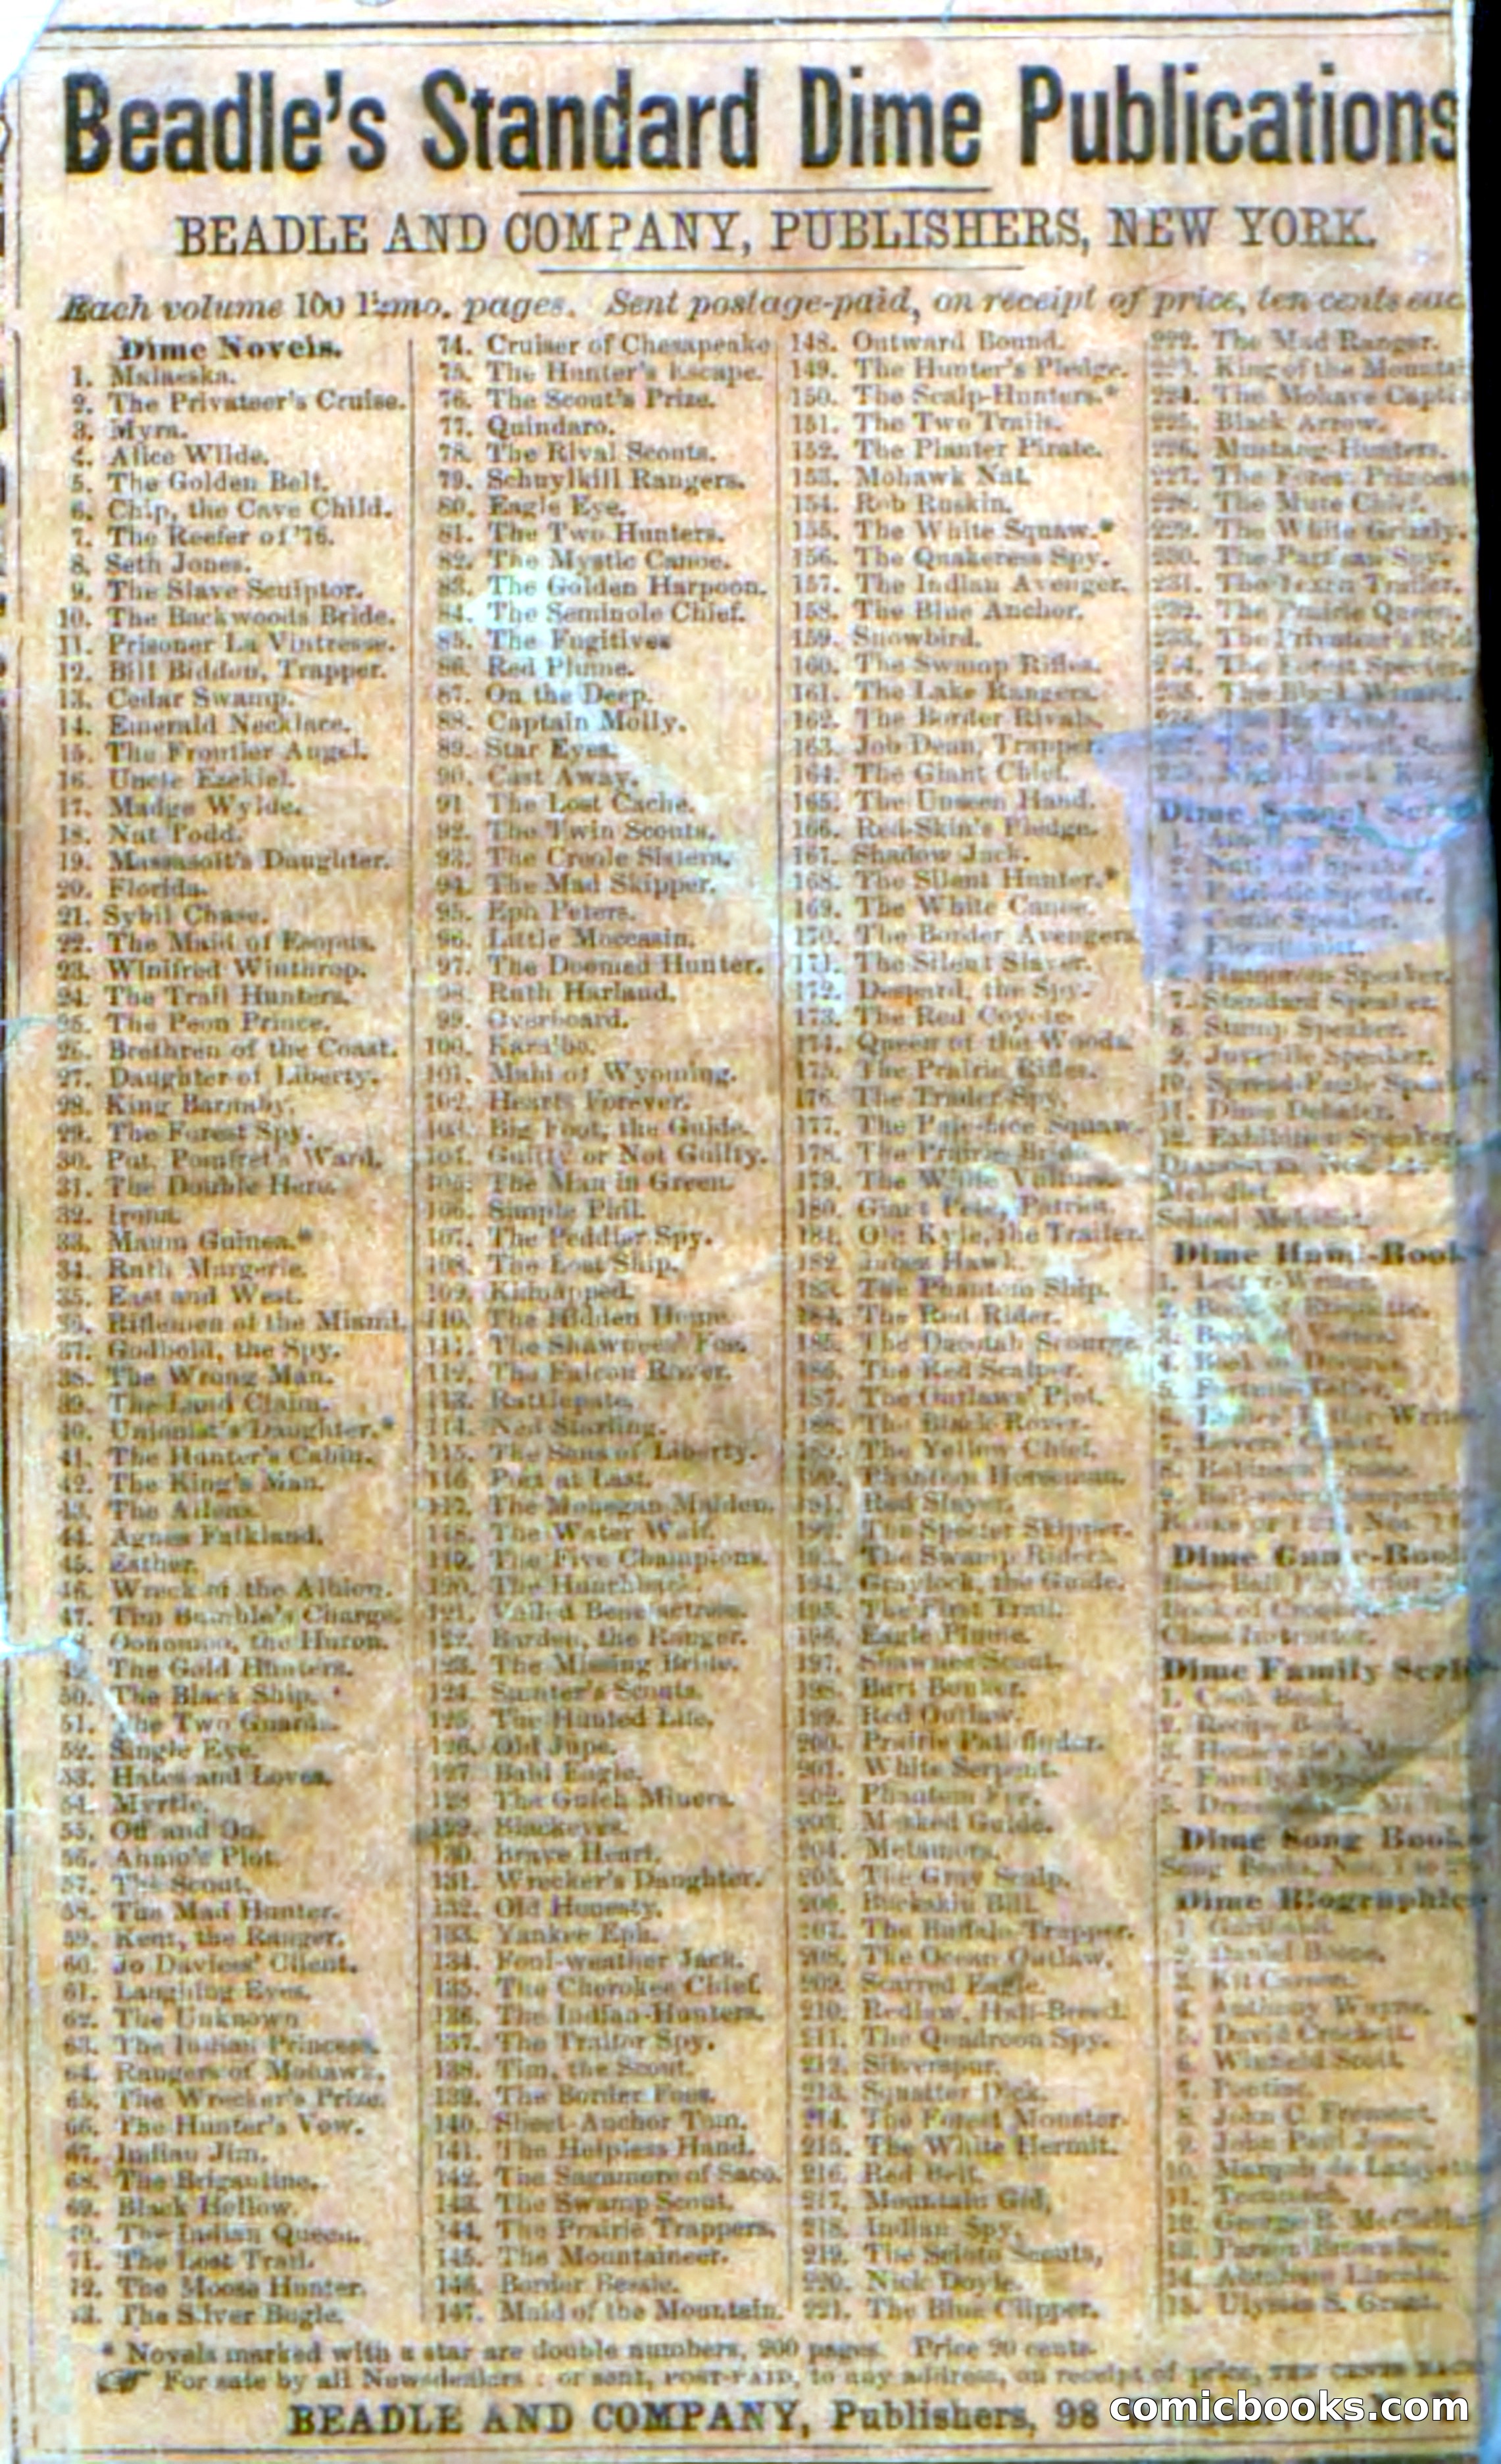 Beadle's Standard Dime Publications
BEADLE AND COMPANY, PUBLISHERS, NEW YORK.
Each volume 100 12mo. pages. Sent postage-paid, on receipt of price, ten cents eac
Dime Novels.
1. Malaeska.
2. The Privateer's Cruise.
3. Myra.
4. Alice Wilde.
5. The Golden Belt.
6. Chip, the Cave Child.
7. The Reefer of '76.
8. Seth Jones.
9. The Slave Sculptor.
10. The Backwoods Bride.
11. Prisoner La Vintresse.
12. Bill Biddon, Trapper.
13. Cedar Swamp.
14. Emerald Necklace.
15. The Frontier Angel.
16. Uncle Ezekiel.
17. Madge Wylde.
18. Nat Todd.
19. Massasoit's Daughter.
20. Florida.
21. Sybil Chase.
22. The Maid of Esopus.
23. Winifred Winthrop.
24. The Trail Hunters.
25. The Peon Prince.
26. Brethren of the Coast.
27. Daughter of Liberty.
28. King Barnaby.
29. The Forest Spy.
30. Put. Pomfret's Ward.
31. The Double Hero.
32. Irona.
33. Maum Guinea.*
34. Ruth Margerie.
35. East and West.
36. Riflemen of the Miami.
37. Godbold, the Spy.
38. The Wrong Man.
39. The Land Claim.
40. Unionist's Daughter.*
41. The Hunter's Cabin.
42. The King's Man.
43. The Aliens.
44. Agnes Falkland.
45. Esther.
46. Wreck of the Albion.
47. Tim Bumble's Charge.
Oonomoo, the Huron.
49. The Gold Hunters.
50. The Black Ship.
51. The Two Guards.
52. Single Eye.
53. Hates and Loves.
54. Myrtle.
55. Off and On.
56. Ahmo's Plot.
57. The Scout.
58. The Mad Hunter.
59. Kent, the Ranger.
60. Jo Daviess' Client.
61. Laughing Eyes.
62. The Unknown
63. The Indian Princess.
64. Rangers of Mohawk.
65. The Wrecker's Prize.
66. The Hunter's Vow.
67. Indian Jim.
68. The Brigantine.
69. Black Hollow.
70. The Indian Queen.
71. The Lost Trail.
72. The Moose Hunter.
73. The Silver Bugle.
74. Cruiser of Chesapeake
75. The Hunter's Escape.
76. The Scout's Prize.
77. Quindaro.
78. The Rival Scouts.
79. Schuylkill Rangers.
80. Eagle Eye.
81. The Two Hunters.
82. The Mystic Canoe.
83. The Golden Harpoon.
84. The Seminole Chief.
85. The Fugitives
86. Red Plume.
87. On the Deep.
88. Captain Molly.
89. Star Eyes.
90. Cast Away.
91 The Lost Cache.
92. The Twin Scouts.
93. The Creole Sisters.
94. The Mad Skipper.
95. Eph Peters.
96. Little Moccasin.
97. The Doomed Hunter.
98. Ruth Harland.
99. Overboard.
100. Karaibo.
101. Maid of Wyoming.
102. Hearts Forever.
103. Big Foot, the Guide.
104. Guilty or Not Guilty.
105. The Man in Green.
106. Simple Phil.
107. The Peddler Spy.
108. The Lost Ship.
109. Kidnapped.
110. The Hidden Home.
111. The Shawnees' Foe.
112. The Falcon Rover.
113. Rattlepate.
114. Ned Starling.
115. The Sons of Liberty.
116. Poet at Last.
117. The Mohegan Maiden.
118. The Water Waif.
119. The Five Champions.
120. The Hunchback.
121. Vailed Benefactress.
122. Barden, the Ranger.
123. The Missing Bride.
124. Sumter's Scouts.
125. The Hunted Life.
126. Old Jupe.
127 Bald Eagle.
128 The Gulch Miners.
129. Blackeyes.
130. Brave Heart.
131. Wrecker's Daughter.
132. Old Honesty.
133. Yankee Eph.
134. Foul-weather Jack.
135. The Cherokee Chief.
136. The Indian-Hunters.
137. The Traitor Spy.
138. Tim, the Scout.
139. The Border Foes.
140. Sheet-Anchor Tom.
141. The Helpless Hand.
142. The Sagamore of Saco.
143. The Swamp Scout.
144. The Prairie Trappers.
145. The Mountaineer.
146. Border Bessie.
147. Maid of the Mountain.
148. Outward Bound.
149. The Hunter's Pledge.
150. The Scalp-Hunters.*
151. The Two Trails.
152. The Planter Pirate.
153. Mohawk Nat.
154. Rob Ruskin.
155. The White Squaw.*
156. The Quakeress Spy.
157. The Indian Avenger.
158. The Blue Anchor.
159. Snowbird.
160. The Swamp Rifles.
161. The Lake Rangers.
162. The Border Rivals.
163. Job Dean, Trapper.
164. The Giant Chief.
165. The Unseen Hand.
166. Red-Skin's Pledge.
167. Shadow Jack.
168. The Silent Hunter.*
169. The White Canoe.
170. The Border Avengers.
171. The Silent Slayer.
172. Despard, the Spy.
173. The Red Coyote.
174. Queen of the Woods.
175. The Prairie Rifles.
176. The Trader Spy.
177. The Pale-face Squaw.
178. The Prairie Bride
179. The White Vulture.
180. Giant Pete, Patriot.
181. Old Kyle, the Trailer.
182. Jabez Hawk.
183. The Phantom Ship.
184. The Red Rider.
185. The Dacotah Scourge.
186. The Red Scalper.
187. The Outlaws' Plot.
188. The Black Rover.
189. The Yellow Chief.
190. Phantom Horseman.
191. Red Slayer.
192. The Specter Skipper.
193. The Swamp Riders.
194. Graylock, the Guide.
195. The First Trail.
196. Eagle Plume.
197. Shawnee Scout.
198. Burt Bunker.
199. Red Outlaw.
200. Prairie Pathfinder.
201. White Serpent.
202. Phantom Foe.
203. Masked Guide.
204. Metamora.
205. The Gray Scalp.
206. Buckskin Bill.
207. The Buffalo Trapper.
208. The Ocean Outlaw.
209. Scarred Eagle.
210. Redlaw, Half-Breed.
211. The Quadroon Spy.
212. Silverspur.
213. Squatter Dick.
214. The Forest Monster.
215. The White Hermit.
216. Red Belt.
217. Mountain Gid,
218. Indian Spy.
219. The Scioto Scouts,
220. Nick Doyle.
221. The Blue Clipper.
222. The Mad Ranger.
223. King of the Mounta
224. The Mohave Capti
225. Black Arrow.
226. Mustang-Hunters.
227. The Forest Princess
228. The Mute Chief.
229. The White Grizzly.
230. The Partisan Spy.
231. The Texan Trailer.
232. The Prairie Queen.
233. The Privateer's Brid
234. The Forest Specter.
235. The Black Wizard.
Dime School
2. National Speaker.
3. Patriotic Speaker.
4. Comic Speaker.
5. Elocutionist.
6. Humorous Speaker.
7. Standard Speaker.
8. Stump Speaker.
9. Juvenile Speaker.
10. Spread-Eagle Speak
11. Dime Debater.
12. Exhibition Speaker.
Melodist.
School Melodist.
Dime Hand-Book
1. Letter-Writer.
2. Book of Etiquette.
3. Book of Verses.
4. Book of Dreams.
5. Fortune-Teller.
Dime Game-Book
Chess Instructor.
Dime Family Seri
1. Cook Book.
2. Recipe Book.
Dime Song Book
Song Books, Nos. 1 to
Dime Biographies
1. Garibaldi.
2. Daniel Boone.
3. Kit Carson.
4. Anthony Wayne.
5. David Crockett.
6. Winfield Scott.
7. Pontiac.
8. John C. Fremont.
9. John Paul Jones.
10. Marquis de Lafayette
11. Tecumseh.
12. George B. McClella
13. Parson Brownlow.
14. Abraham Lincoln.
15. Ulysses S. Grant.
* Novels marked with a star are double numbers, 200 pages. Price 20 cents.
For sale by all Newsdealers: or sent, POST-PAID, to any address, on receipt of price, TEN CENTS EACH
BEADLE AND COMPANY, Publishers, 98
comicbooks.com